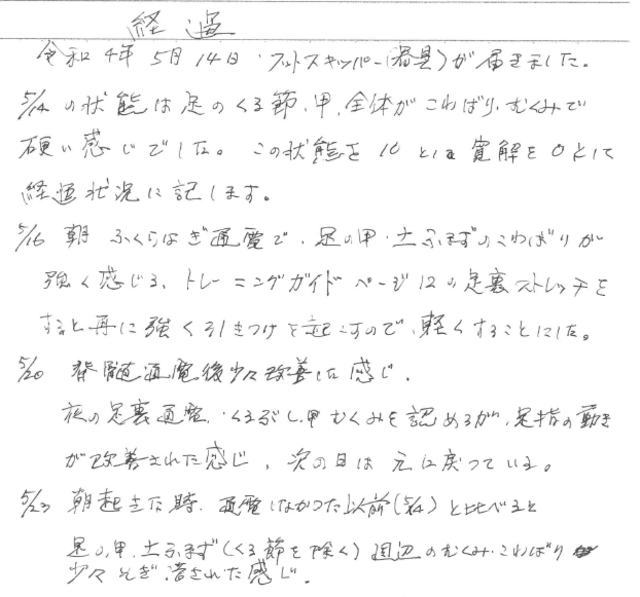 経過
令和4年5月14日・フットスキッパー(器具)が届きました。
5/14の状態は足のくる節、甲、全体がこわばり、むくみで
硬い感じでした。この状態を10とし寛解を0として
経過状況に記します。
5/16 朝 ふくらはぎ通電で、足の甲・土ふまずのこわばりが
強く感じる、トレーニングガイドページ12の足裏ストレッチを
すると再に強く引きつけを起こすので、軽くすることにした。
5/20 脊髄通電後少々改善した感じ.
夜の足裏通電・くるぶし、甲むくみを認めるが、足指の動き
が改善された感じ、次の日は元に戻っている。
5/23 朝起きた時、通電しなかった以前(5/14)と比べると
足の甲、土ふまず(くる節を除く)周辺のむくみ・こわばり
少々そぎ落された感じ.